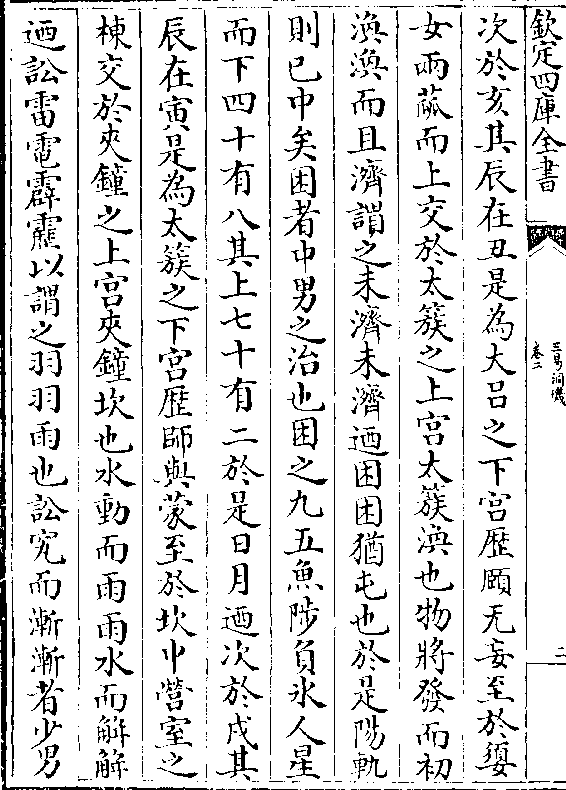 欽定四庫全書
三易洞璣
卷二
二
次於亥其辰在丑是為大呂之下宮歴頤无妄至於婺
女兩蓏而上交於太簇之上宮太簇渙也物將發而初
渙渙而且濟謂之未濟未濟迺困困猶屯也於是陽軌
則已中矣困者中男之治也困之九五魚陟負氷人星
而下四十有八其上七十有二於是日月迺次於戌其
辰在寅是為太簇之下宮歴師與蒙至於坎中營室之
棟交於夾鐘之上宮夾鐘坎也水動而雨雨水而解解
迺訟雷電霹靂以謂之羽羽雨也訟究而漸漸者少男